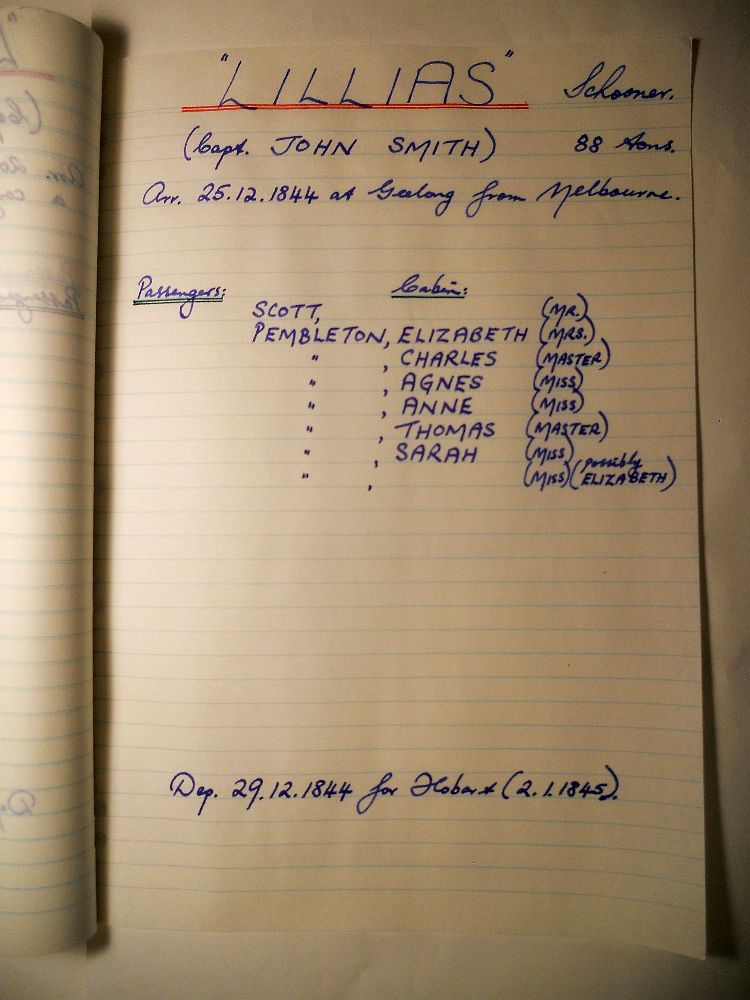 "LILLIAS" Schooner.
(Capt. JOHN SMITH) 88 tons.
Arr. 25.12.1844 at Geelong from Melbourne.
Passengers: Cabin:
SCOTT, (MR.)
PEMBLETON, ELIZABETH (MRS.)
" , CHARLES (MASTER)
" , AGNES (MISS)
" , ANNE (MISS)
" , THOMAS (MASTER)
" , SARAH (MISS)
" , (MISS) (possibly ELIZABETH)
Dep. 29.12.1844 for Hobart (2.1.1845).